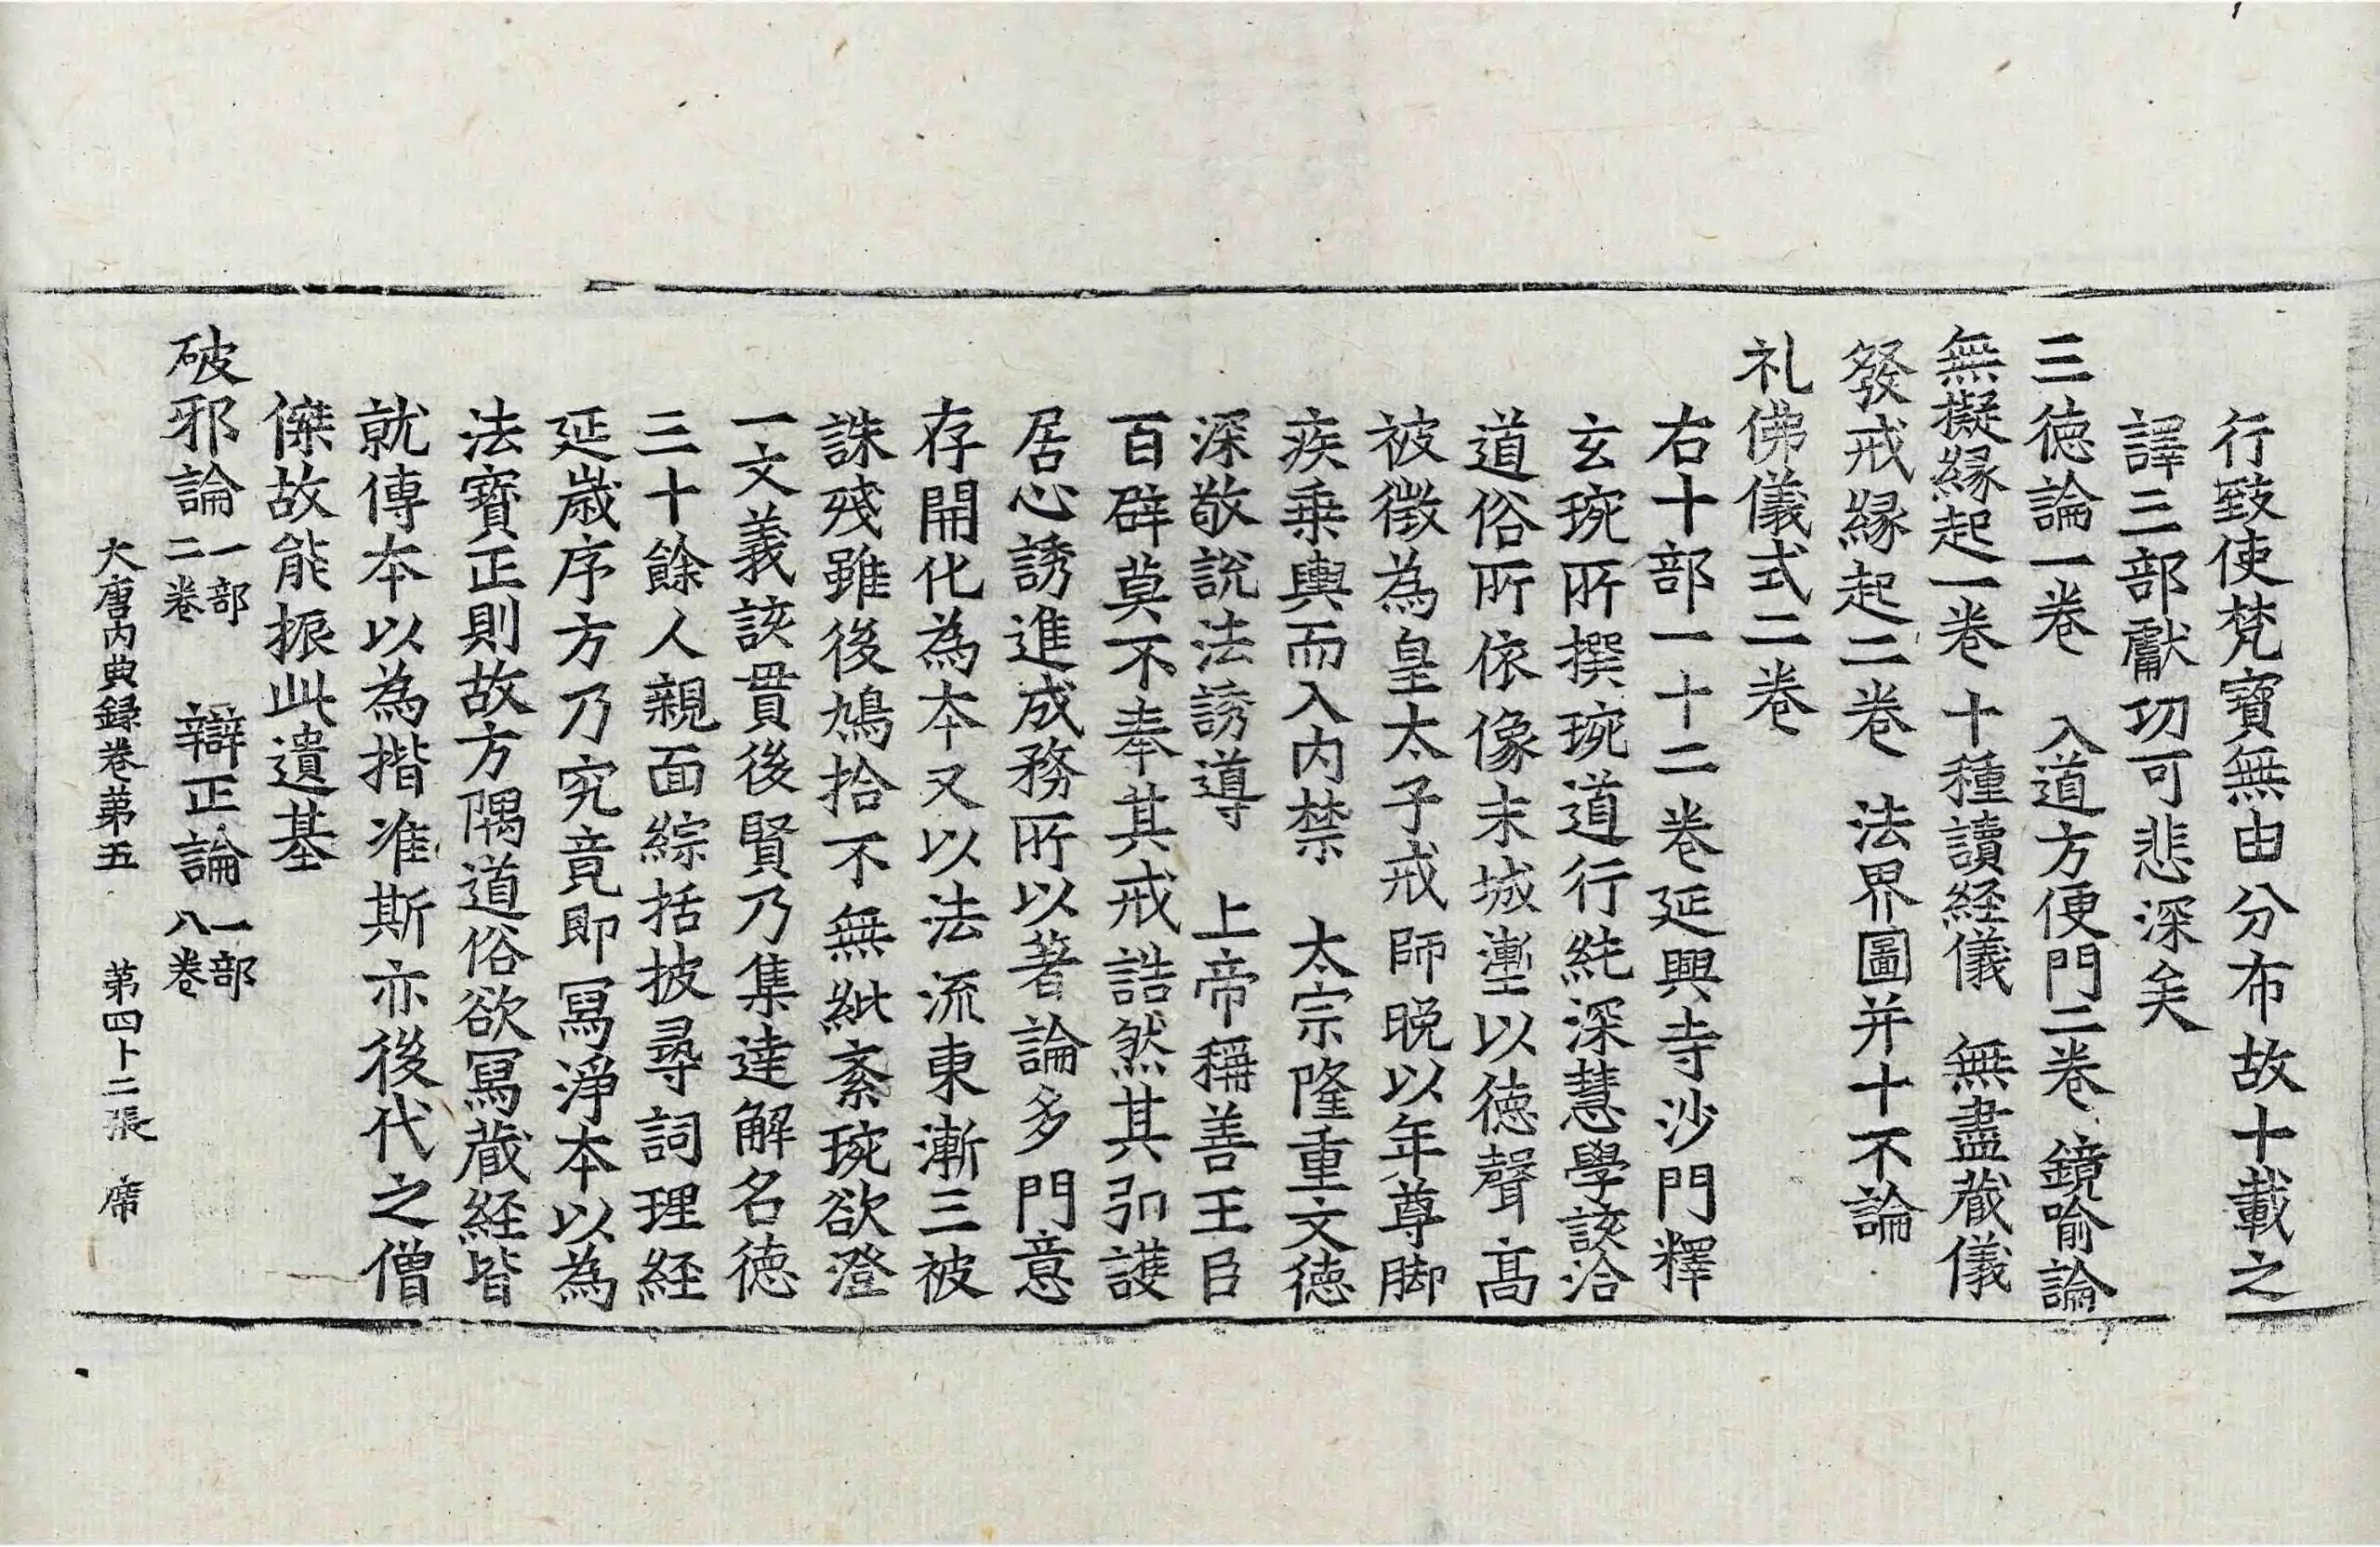 行致使梵寶無由分布故十載之
譯三部獻功可悲深矣
三德論一卷 入道方便門二卷 鏡喻論
無擬緣起一卷 十種讀経儀 無盡蔵儀
發戒緣起二卷 法界圖并十不論
礼佛儀式二卷
右十部一十二卷延興寺沙門釋
玄琬所撰琬道行純深慧學該洽
道俗所依像末城壍以德聲高
被徵為皇太子戒師晚以年尊脚
疾乗輿而入内禁 太宗隆重文德
深敬説法誘導 上帝稱善王臣
百辟莫不奉其戒誥然其弘護
居心誘進成務所以著論多門意
存開化為本又以法流東漸三被
誅殘雖後鳩拾不無紕紊琬欲澄
一文義該貫後賢乃集達解名德
三十餘人親面綜括披尋詞理経
延歲序方乃究竟即冩淨本以為
法寶正則故方隅道俗欲冩蔵経皆
就傳本以為揩准斯亦後代之僧
傑故能振此遺基
破邪論一部二卷 辯正論一部八卷
大唐内典録卷第五 第四十二張 席